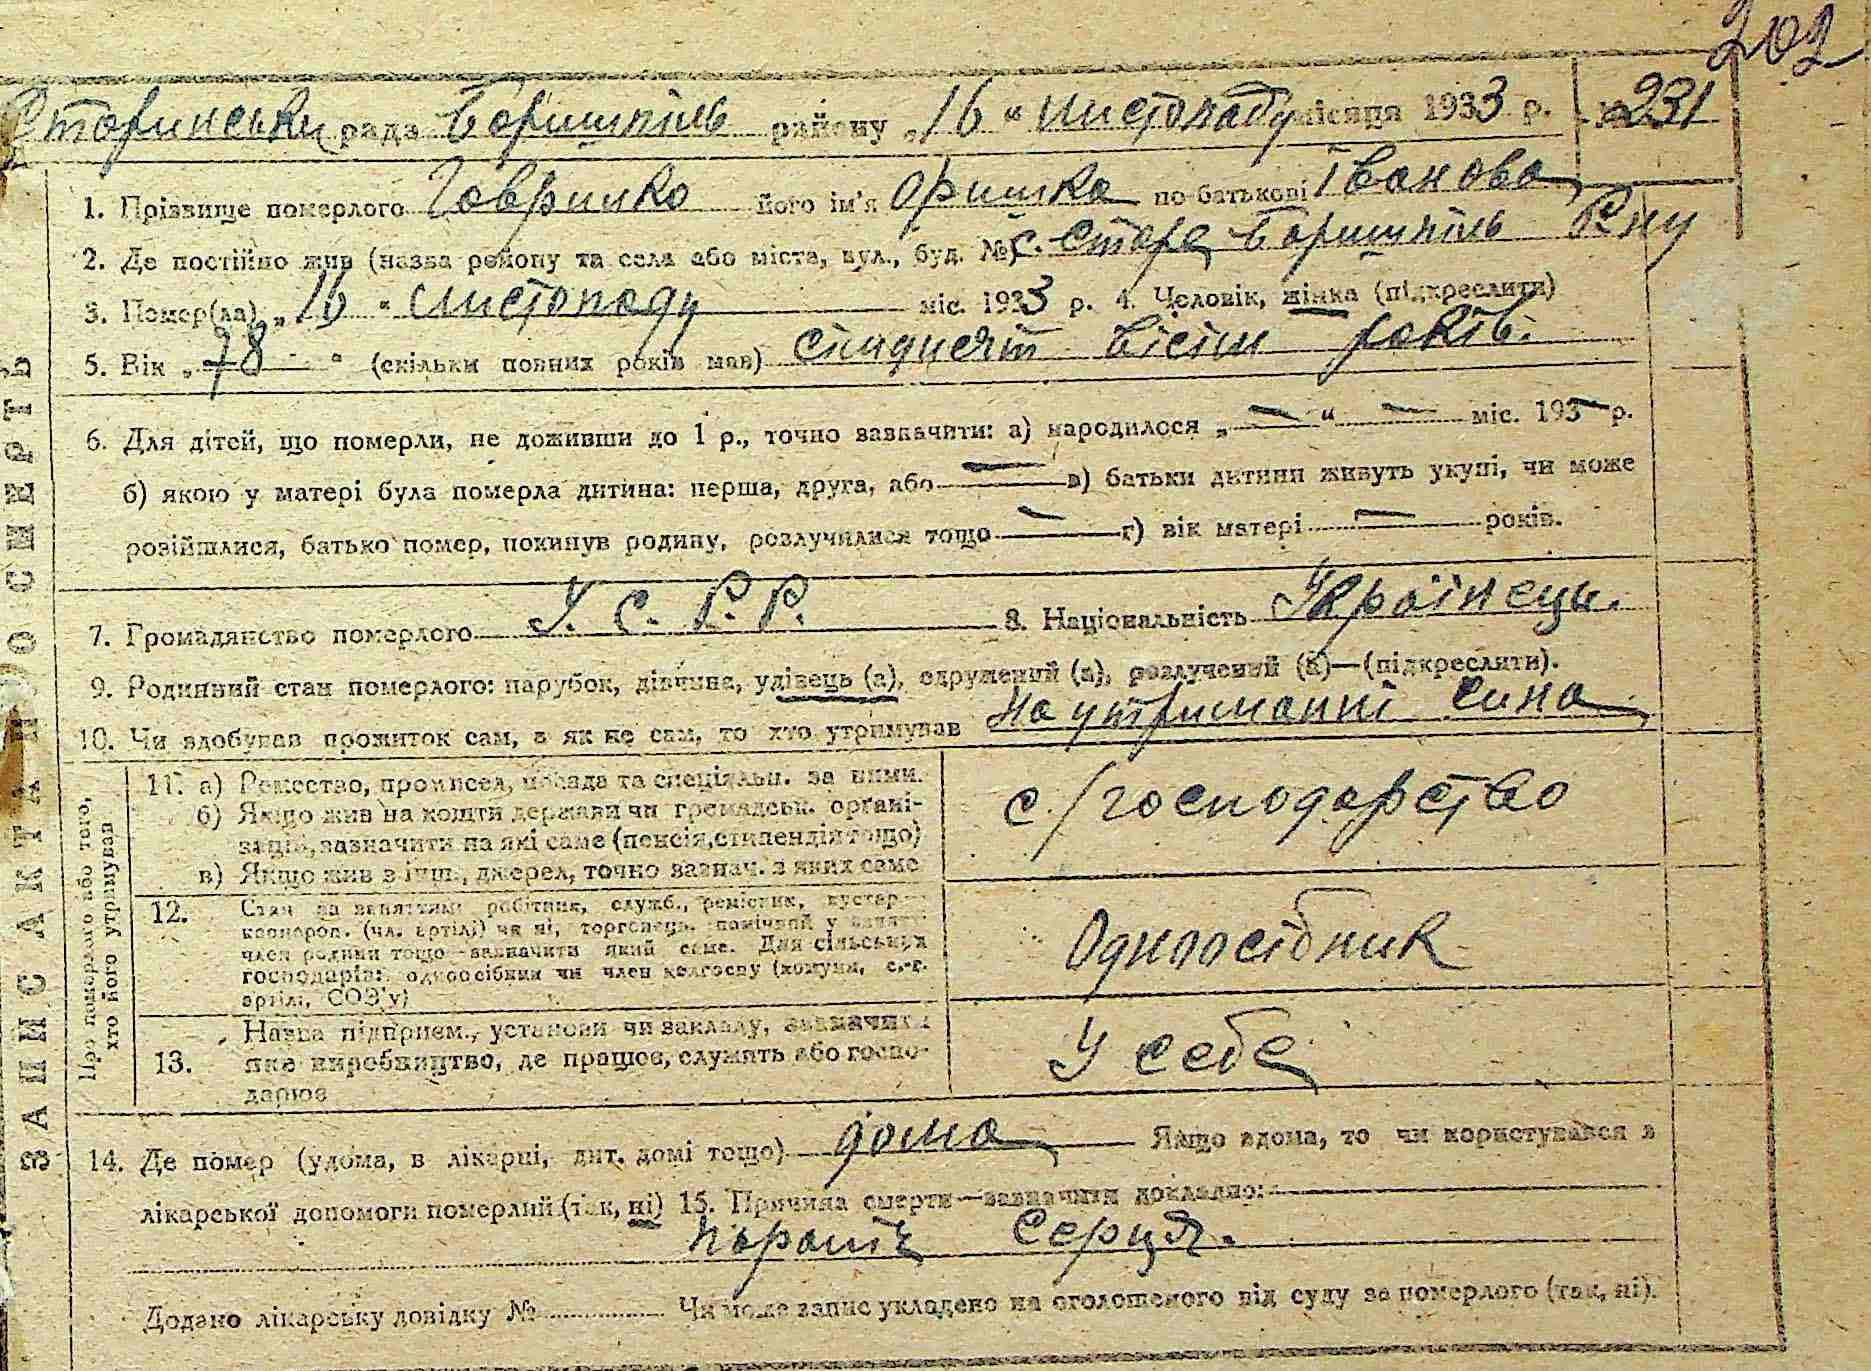 202
Старинськ рада Боришпіль району „16“ листопаду місяця 1933 р. № 231
1. Прізвище померлого Гаврилко його ім'я Оришка по батькові Іванова
2. Де постійно жив (назва району та села або міста, вул., буд. №) с. Старе Боришпіль Р-ну
3. Помер(ла) „16“ листопаду міс. 1933 р. 4. Чоловік, жінка (підкреслити)
5. Вік „78“ (скільки повних років мав) сімдисят вісім років.
6. Для дітей, що померли, не доживши до 1 р., точно зазначити: а) народилося „—“ — міс. 193— р.
б) якою у матері була померла дитина: перша, друга, або — в) батьки дитини живуть укупі, чи може
розійшлися, батько помер, покинув родину, розлучилися тощо — г) вік матері — років.
7. Громадянство померлого У. С. Р. Р. 8. Національність Українець.
9. Родинний стан померлого: парубок, дівчина, удівець (а), одружений (а), розлучений (а)—(підкреслити).
10. Чи здобував прожиток сам, а як не сам, то хто утримував На утриманні сина
ЗАПИС АКТА ПРО СМЕРТЬ
Про померлого або того, хто його утримував
11. а) Ремество, промисел, посада та спеціяльн. за ними.
б) Якщо жив на кошти держави чи громадськ. органі-
зацій, зазначити на які саме (пенсія, стипендія тощо)
в) Якщо жив з інш. джерел, точно зазнач. з яких саме
с/господарство
12. Стан за заняттям робітник, служб., ремісник, кустар—
кооперов. (чл. артілі) чи ні, торговець, помічний у занятті
член родини тощо—зазначити який саме. Для сільських
господарів: одноосібник чи член колгоспу (комуни, с.-г.
артілі, СОЗ'у)
Одноосібник
13. Назва підприєм., установи чи закладу, зазначити
яке виробництво, де працює, служить або госпо-
дарює
У себе
14. Де помер (удома, в лікарні, дит. домі тощо) дома Якщо вдома, то чи користувався з
лікарської допомоги померлий (так, ні) 15. Причина смерти—зазначити докладно:
параліч Серця.
Додано лікарську довідку № Чи може запис укладено на оголошеного від суду за померлого (так, ні).